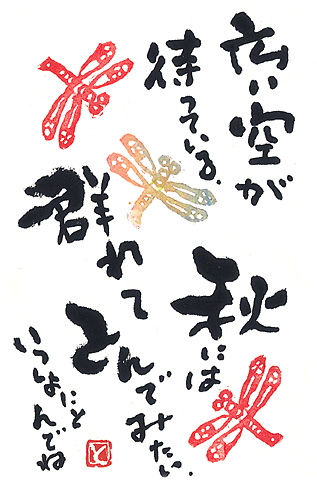 広い空が
待っている.
秋には
群れて
とんでみたい.
いっしょにとんでね
と